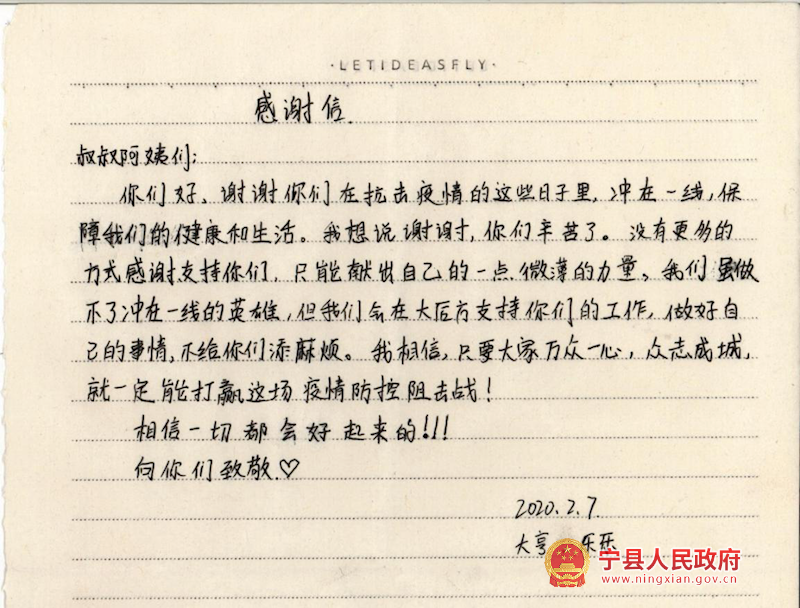 ·LETIDEASFLY·
感谢信.
叔叔阿姨们:
你们好、谢谢你们在抗击疫情的这些日子里,冲在一线,保
障我们的健康和生活。我想说谢谢,你们辛苦了。没有更多的
方式感谢支持你们,只能献出自己的一点微薄的力量、我们虽做
不了冲在一线的英雄,但我们会在大后方支持你们的工作,做好自
己的事情,不给你们添麻烦。我相信,只要大家万众一心,众志成城,
就一定能打赢这场疫情防控阻击战!
相信一切都会好起来的!!!
向你们致敬♡
2020.2.7.
大亨 乐乐
宁县人民政府
www.ningxian.gov.cn